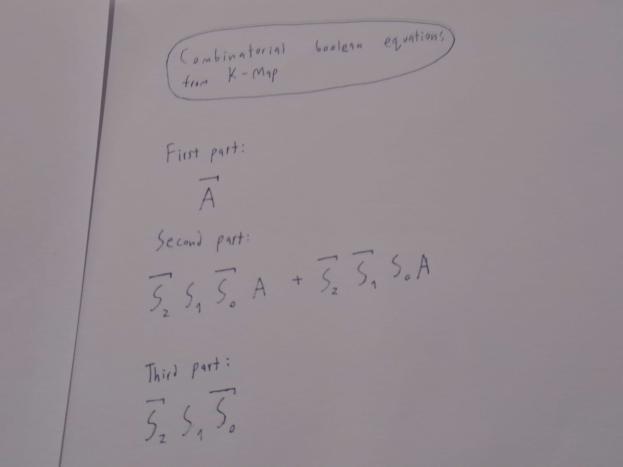 Combinatorial boolean equations
from K-Map
First part:
A̅
Second part:
S̅₂ S₁ S̅₀ A + S̅₂ S̅₁ S₀ A
Third part:
S̅₂ S₁ S̅₀